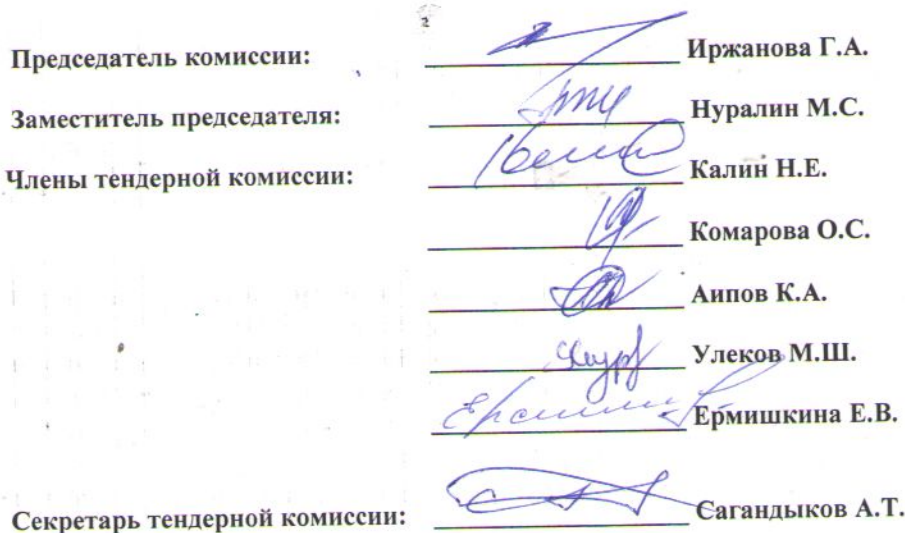 2
Председатель комиссии: Иржанова Г.А.
Заместитель председателя: Нуралин М.С.
Члены тендерной комиссии: Калин Н.Е.
Комарова О.С.
Аипов К.А.
Улеков М.Ш.
Ермишкина Е.В.
Секретарь тендерной комиссии: Сагандыков А.Т.